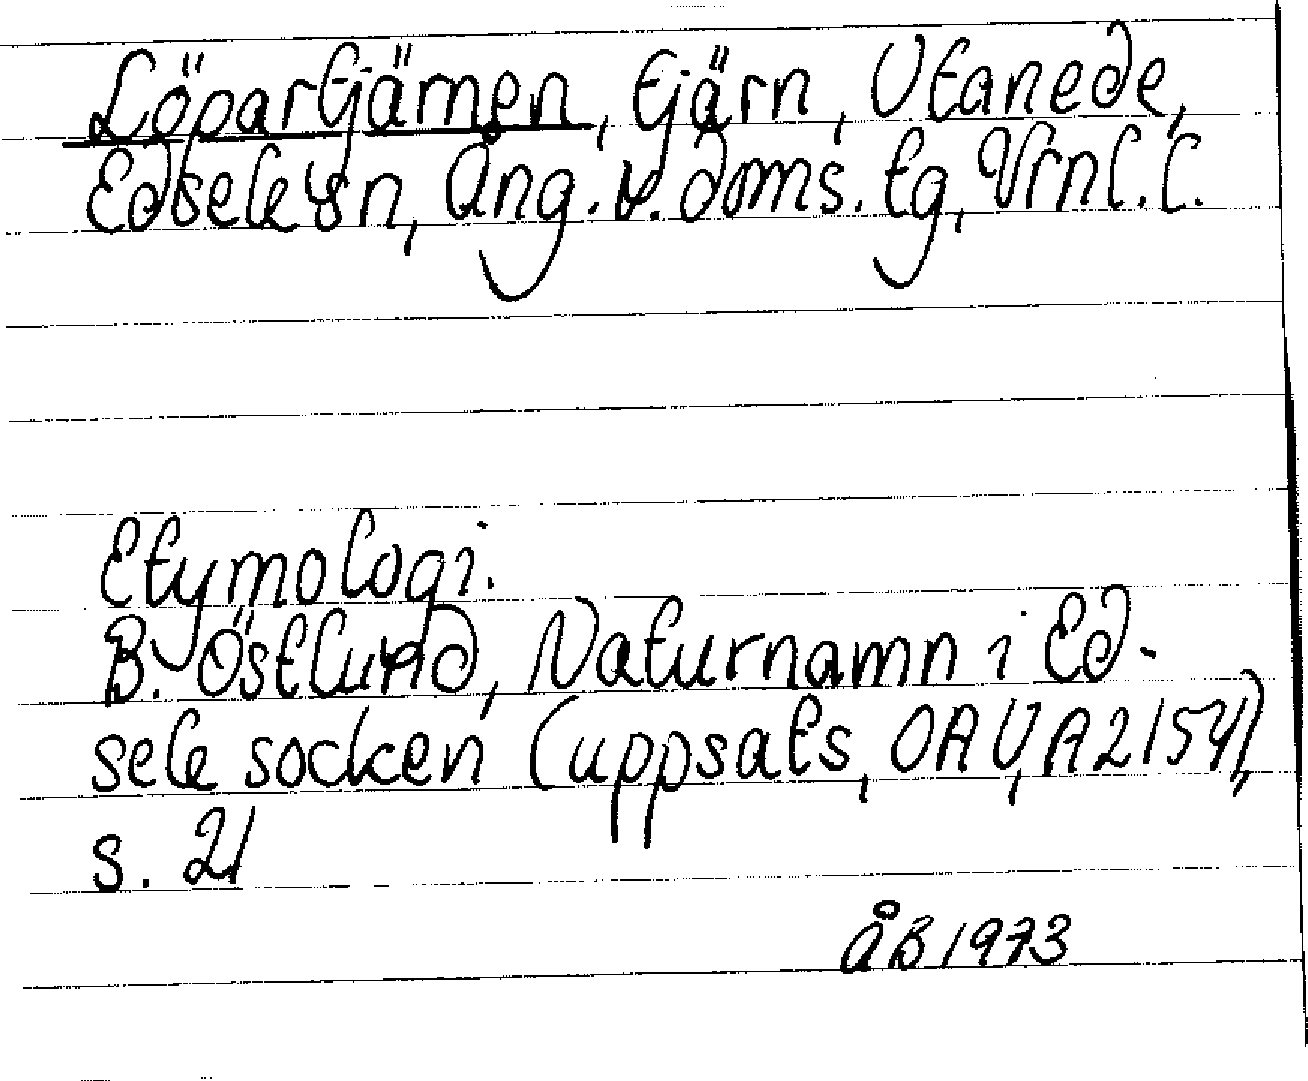 Löpartjärnen, tjärn, Utanede,
Edsele sn, Ång. v. doms. tg, Vrnl. l.
Etymologi.
B. Östlund, Naturnamn i Ed-
sele socken (uppsats, OAU, A2154),
s. 21
ÅB 1973